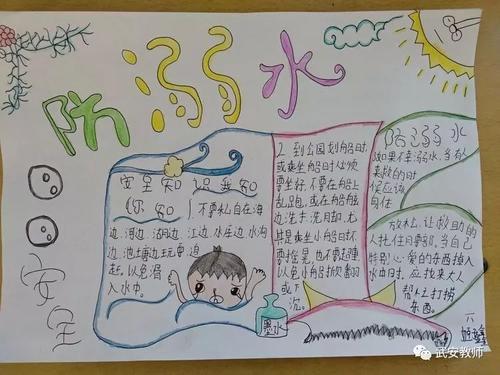 防溺水
安全
安全知识我知
你知 1.不要私自在海
边、河边、湖边、江边、水库边、水沟
边、池塘边玩耍、追
赶,以免滑
入水中。
2.到公园划船时
或乘坐船时必须
要坐好,不要在船上
乱跑,或在船舷
边洗手、洗脚,尤
其是乘坐小船时不
要摇晃,也不要超重
以免小船掀翻
或下
沉。
墨水
防溺水
如果不幸溺水,当有
人来救助的时
候应该
身体
放松,让救助的
人托住腰部,当自己
特别心爱的东西掉入
水中时,应找来大人
帮忙打捞
东西。
六
武安教师